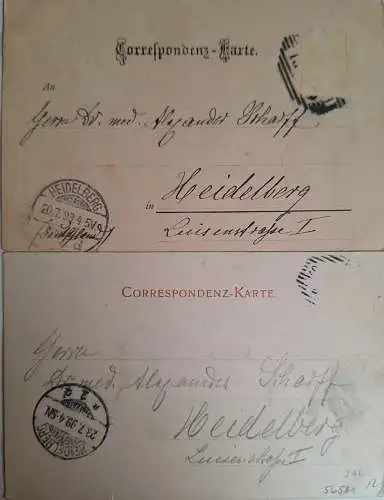 Correspondenz-Karte.
An
Herrn Dr. med. Alexander Scharff
HEIDELBERG
20.7.99.4-5V.
in Heidelberg
Luisenstraße I
CORRESPONDENZ-KARTE.
Herrn
Dr. med. Alexander Scharff
HEIDELBERG
23.7.99.4-5N.
Heidelberg
Luisenstraße I
56581